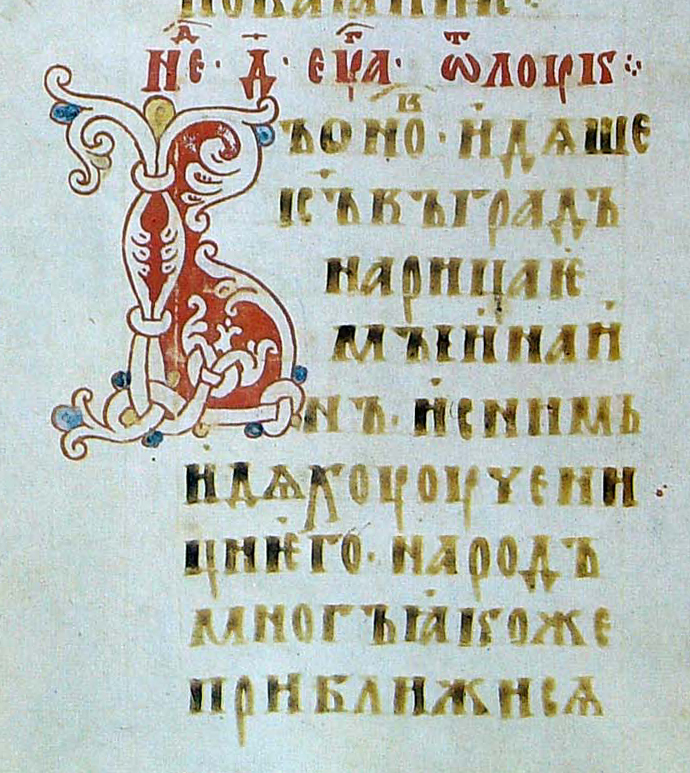 НЕⷣ · Д҃ · ЕУⷢА · ѾЛОУК ⁘
ВЪОНОⷡ · ИДѦШЕ
ІСЪВЪГРАДЪ
НАРИЦАѤ
МЪІИНАИ
НЪ · ИСНИМЬ
ИДѦХОУОУЧЕНИ
ЦИѤГО · НАРОДЪ
МНОГЪꙖКОЖЕ
ПРИБЛИЖИСѦ